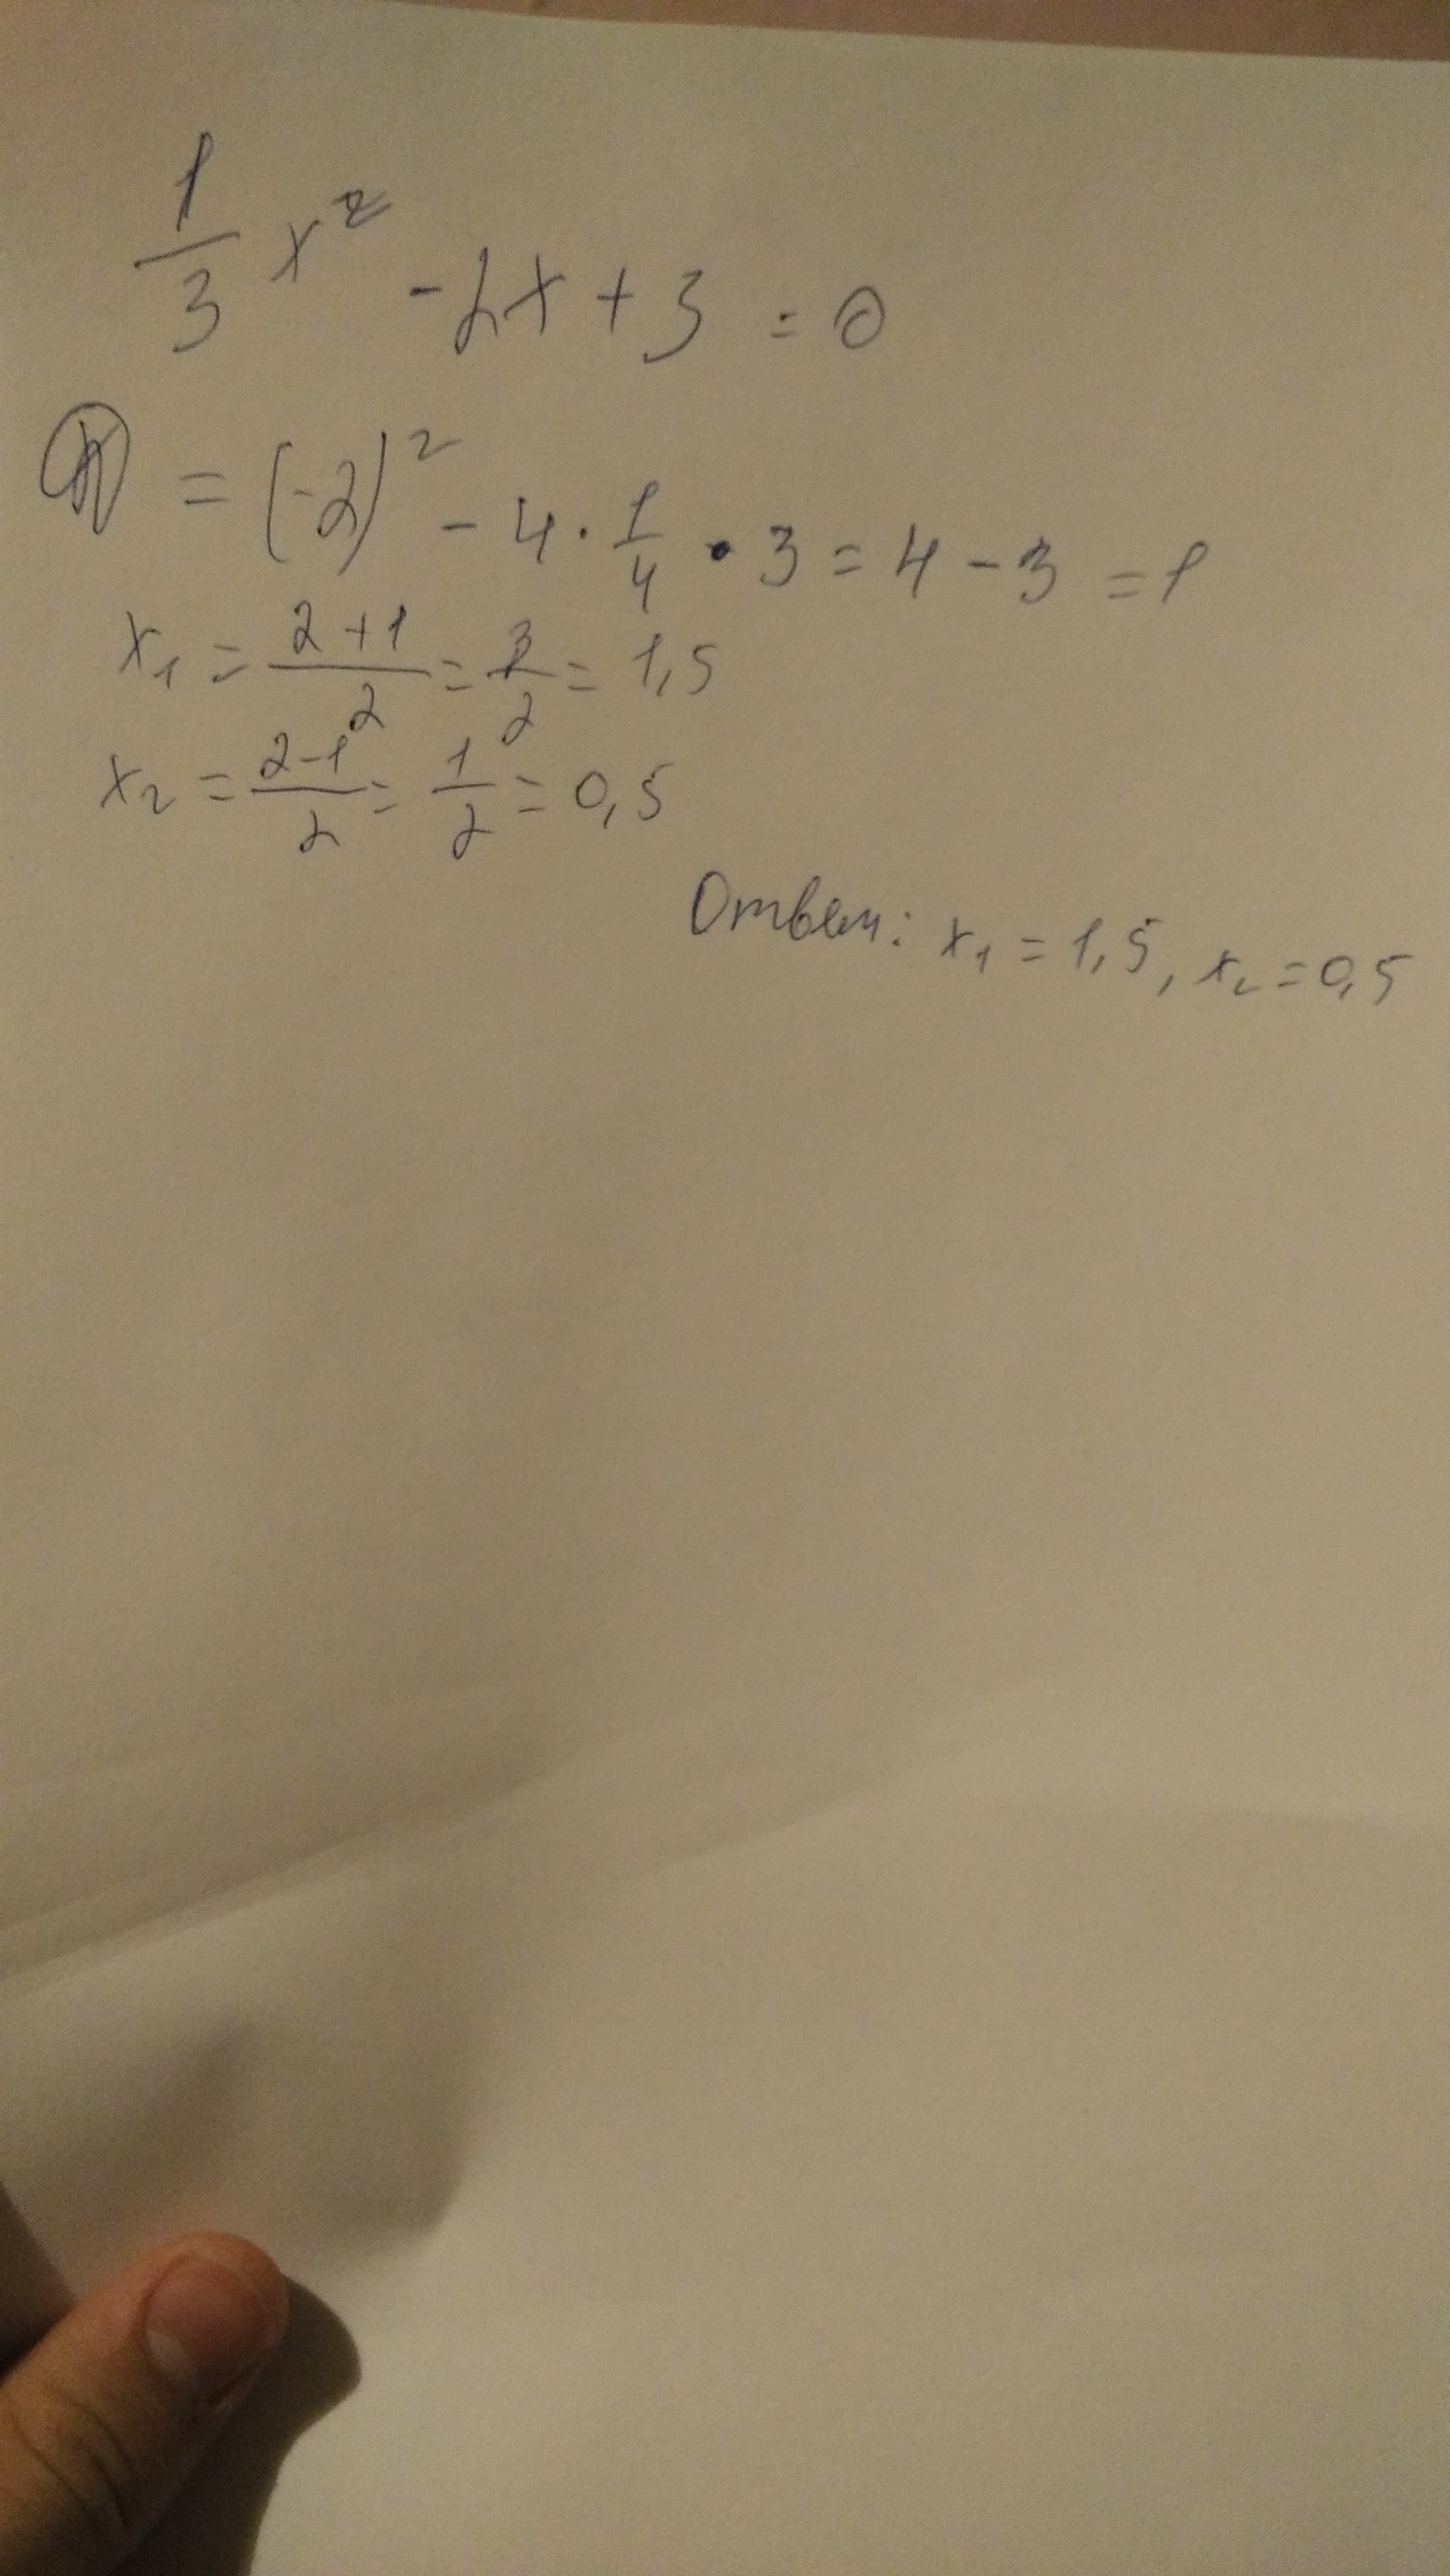 1/3 x² - 2x + 3 = 0
= (-2)² - 4 · 1/4 · 3 = 4 - 3 = 1
x₁ = (2+1)/2 = 3/2 = 1,5
x₂ = (2-1)/2 = 1/2 = 0,5
Ответ: x₁ = 1,5, x₂ = 0,5